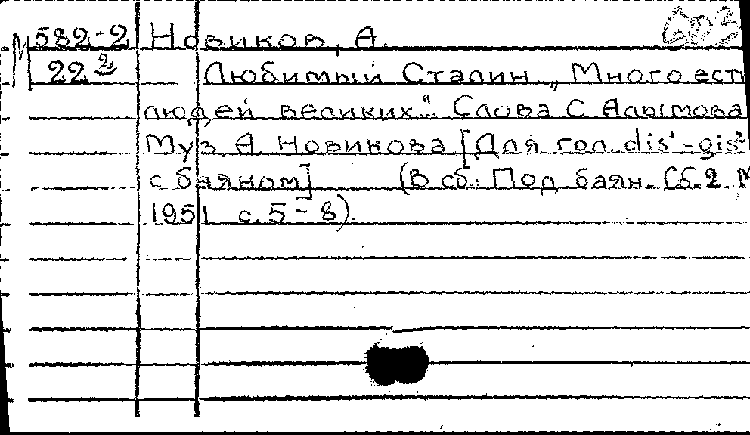 М 582-2 Новиков, А. 603
22² Любимый Сталин „Много есть
людей великих“. Слова С. Алымова
Муз. А. Новикова [Для гол. dis'-gis²
с баяном] (В сб.: Под баян. Сб. 2. М
1951 с. 5-8).